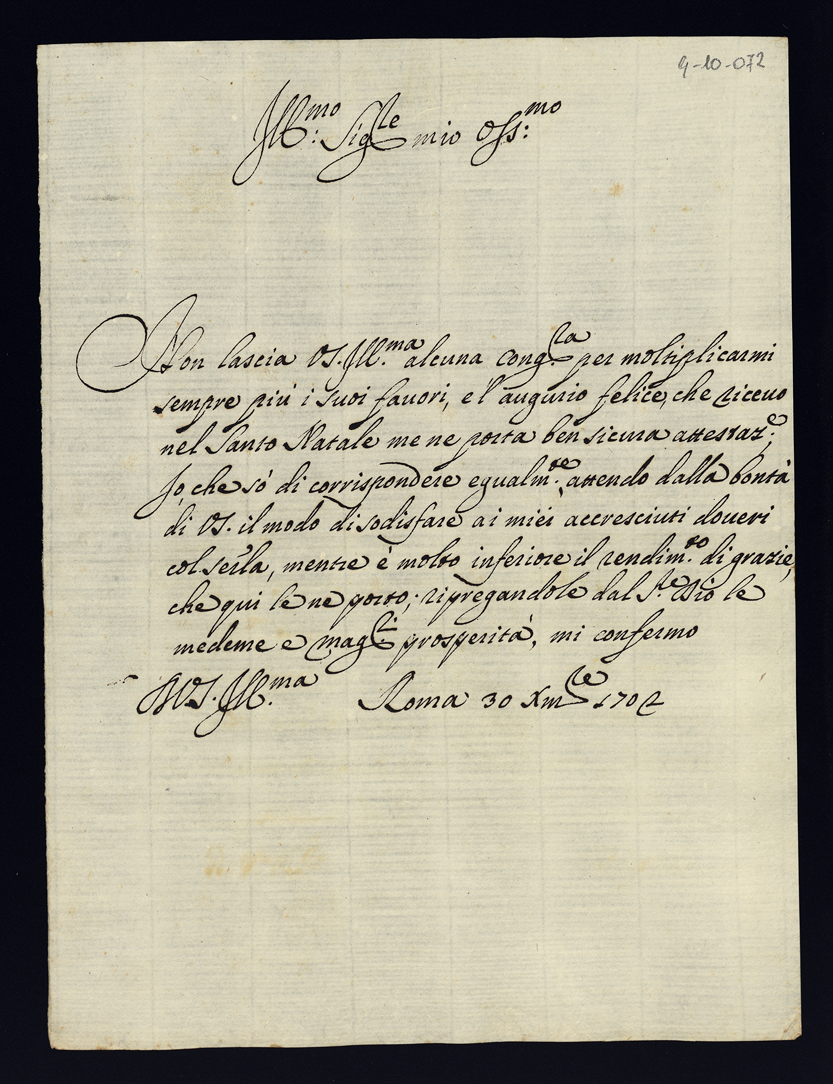 9-10-072
Ill.mo: Sig.re mio Oss:mo
Non lascia VS. Ill.ma alcuna cong.ra per moltiplicarmi
sempre più i suoi fauori, e l'augurio felice, che riceuo
nel Santo Natale me ne porta ben sicura attestaz.e;
Io, che sò di corrispondere egualm.te, attendo dalla bontà
di VS. il modo di sodisfare ai miei accresciuti doueri
col seruirla, mentre è molto inferiore il rendim.to di grazie,
che qui le ne porto; ripregandole dal S.re Dio le
medeme e mag.ri prosperità, mi confermo
DVS. Ill.ma Roma 30 Xmbre 1702